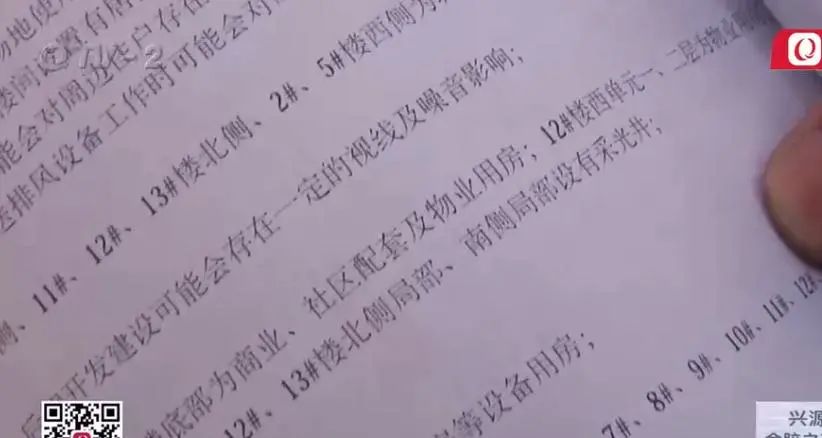 场地使
楼间设置有居
能会对周边住户存在
送排风设备工作时可能会对
侧、11#、12#、13#楼北侧、2#、5#楼西侧为
后期开发建设可能会存在一定的视线及噪音影响;
楼底部为商业、社区配套及物业用房; 12#楼西单元一、二层为物业用
12#、13#楼北侧局部、南侧局部设有采光井;
等设备用房;
7#、8#、9#、10#、11#、12#
兴源